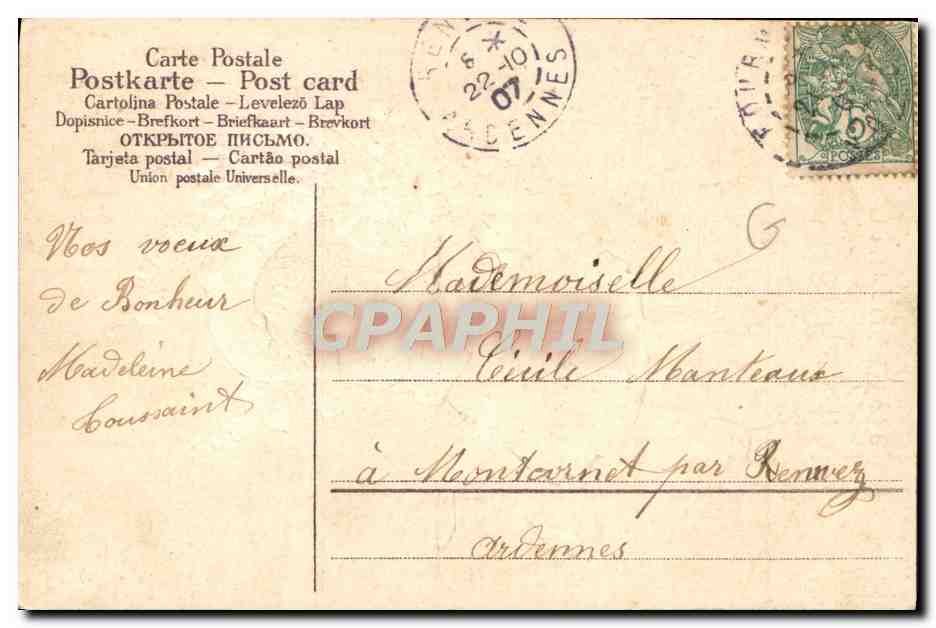 Carte Postale
Postkarte – Post card
Cartolina Postale – Levelező Lap
Dopisnice – Brefkort – Briefkaart – Brevkort
ОТКРЫТОЕ ПИСЬМО.
Tarjeta postal — Cartão postal
Union postale Universelle.
22 -10
07
ARDENNES
POSTES
G
Nos voeux
de Bonheur
Madeleine
Toussaint
Mademoiselle
Cécile Manteaux
à Montcornet par Renwez
Ardennes
CPAPHIL